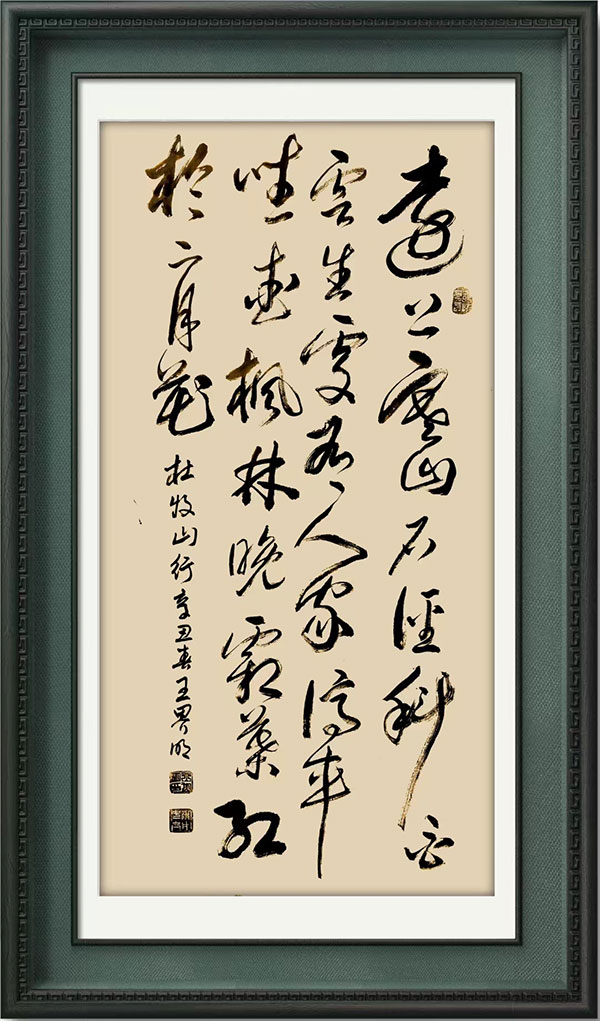 遠上寒山石徑斜白
雲生處有人家停車
坐愛楓林晚霜葉紅
於二月花
杜牧山行辛丑春王界明